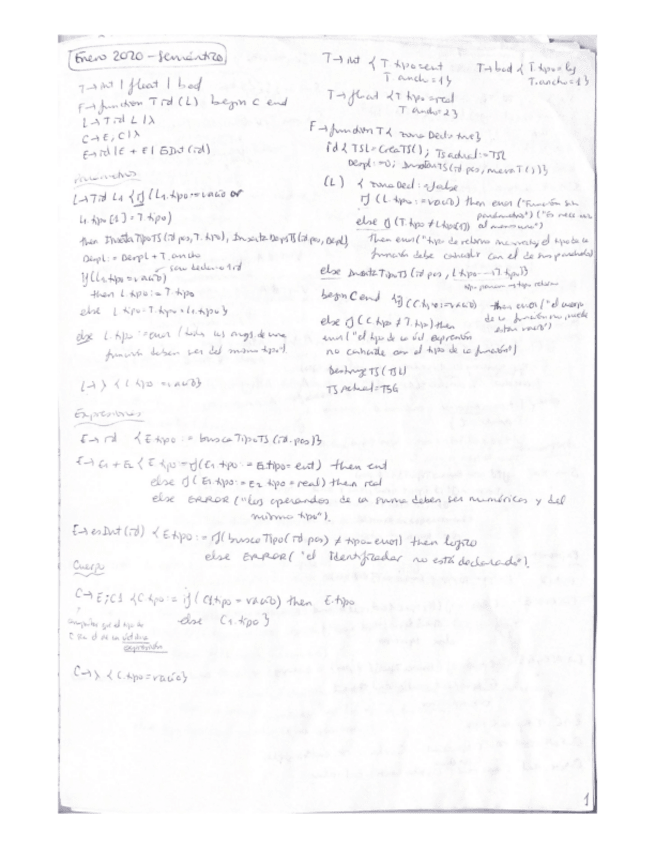 Enero 2020 - Semántico
T → int | float | bool
F → function T id (L) begin C end
L → T id L | λ
C → E; C | λ
E → id | E + E | EsInt (id)
Parámetros
L → T id L1 { if (L1.tipo = vacío or
L1.tipo [1] = T.tipo)
then InsertaTipoTS (id.pos, T.tipo), InsertaDespTS (id.pos, Despl)
Despl := Despl + T.ancho
if (L1.tipo = vacío) solo declaro 1 id
then L.tipo := T.tipo
else L.tipo := T.tipo x L1.tipo }
else L.tipo := error (todos los args. de una
función deben ser del mismo tipo)
L → λ { L.tipo := vacío }
T → int { T.tipo := ent
T.ancho = 1 }
T → bool { T.tipo = log
T.ancho = 1 }
T → float { T.tipo = real
T.ancho = 2 }
F → function T { zonaDecl = true }
id { TSL = CreaTS(); TSactual := TSL
Despl := 0; InsertaTS (id.pos, T )}
(L) { zonaDecl := false
if (L.tipo := vacío) then error ("Función sin
parámetros") ("Es necesario al menos uno")
else if (T.tipo ≠ L.tipo[1])
then error ("tipo de retorno incorrecto, el tipo de la
función debe coincidir con el de los parámetros)
else InsertaTipoTS (id.pos, L.tipo → T.tipo)}
tipo param → tipo retorno
begin C end { if (C.tipo := vacío) then error ("el cuerpo
de la función no puede
estar vacío")
else if (C.tipo ≠ T.tipo) then
error ("el tipo de la últ expresión
no coincide con el tipo de la función")
DestruyeTS (TSL)
TSactual = TSG
Expresiones
E → id { E.tipo := buscaTipoTS (id.pos)}
E → E1 + E2 { E.tipo := if (E1.tipo := E2.tipo = ent) then ent
else if (E1.tipo := E2.tipo = real) then real
else ERROR ("Los operandos de la suma deben ser numéricos y del
mismo tipo").
E → esInt (id) { E.tipo := if (buscaTipo (id.pos) ≠ tipo_error) then lógico
else ERROR ("el identificador no está declarado").
Cuerpo
C → E; C1 { C.tipo := if (C1.tipo = vacío) then E.tipo
else C1.tipo }
que el tipo de
C sea el de la última
expresión
C → λ { C.tipo = vacío }
1